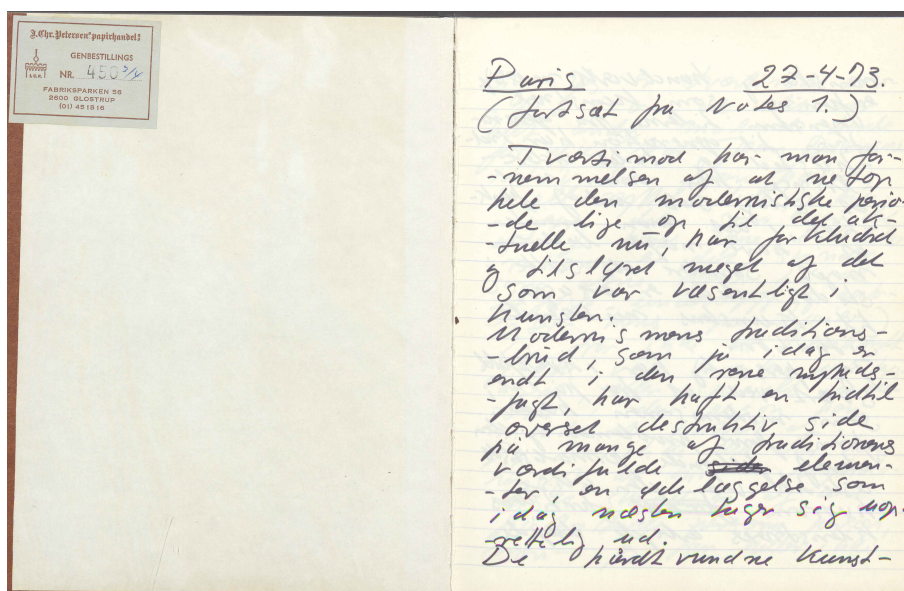 J. Chr. Petersens papirhandel
GENBESTILLINGS
NR. 450 3/4
FABRIKSPARKEN 56
2600 GLOSTRUP
(01) 45 15 16
Paris 27-4-73.
(fortsat fra Notes 1.)
Tværtimod har man for-
-nemmelsen af at netop
hele den modernistiske perio-
-de lige op til det ak-
-tuelle nu, har forkludret
og tilsløret meget af det
som var væsentligt i
kunsten.
Modernismens traditions-
-brud, som jo idag er
endt i den rene nyheds-
-jagt, har haft en hidtil
overset destruktiv side
på mange af traditionens
værdifulde elemen-
-ter, en ødelæggelse som
idag næsten tager sig uop-
-rettelig ud.
De hårdt vundne kunst-